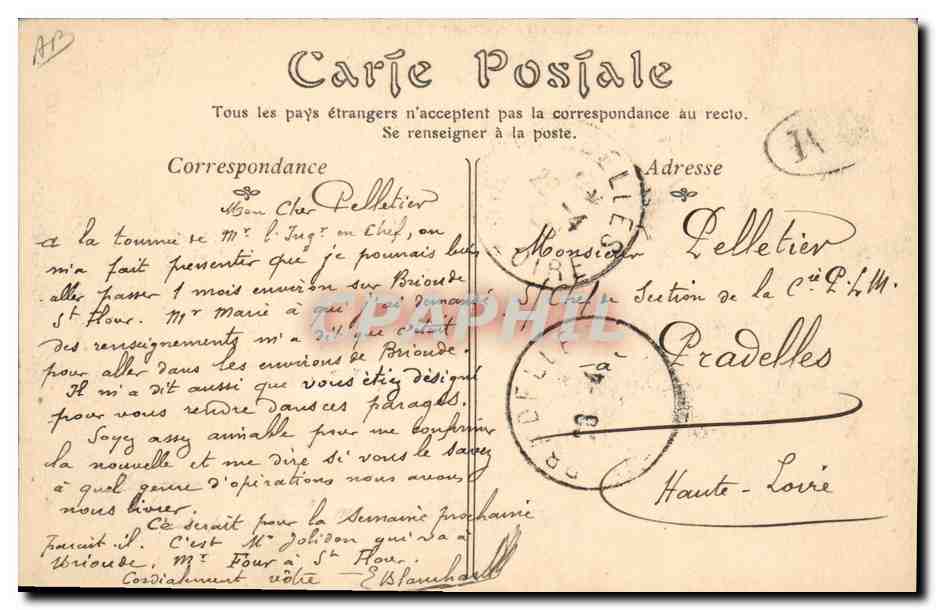 AB
Carte Postale
Tous les pays étrangers n'acceptent pas la correspondance au recto.
Se renseigner à la poste.
Correspondance
Mon Cher Pelletier
A la tournée de Mr l'Ingr en Chef, on
m'a fait pressentir que je pourrais bien
aller passer 1 mois environ sur Brioude
St Flour. Mr Marié à qui j'ai demandé
des renseignements m'a dit que c'était
pour aller dans les environs de Brioude.
Il m'a dit aussi que vous étiez désigné
pour vous rendre dans ces parages.
Soyez assez aimable pour me confirmer
la nouvelle et me dire si vous le savez
à quel genre d'opérations nous avons
nous livrer.
Ce serait pour la semaine prochaine
parait-il. C'est Mr Jolidon qui va à
Brioude, Mr Four à St Flour.
Cordialement vôtre EBlanchard
Adresse
Monsieur Pelletier
S/Chef de Section de la Cie P.L.M.
à Pradelles
Haute-Loire
ELLES
OIRE
PRADELLE
CPAPHIL